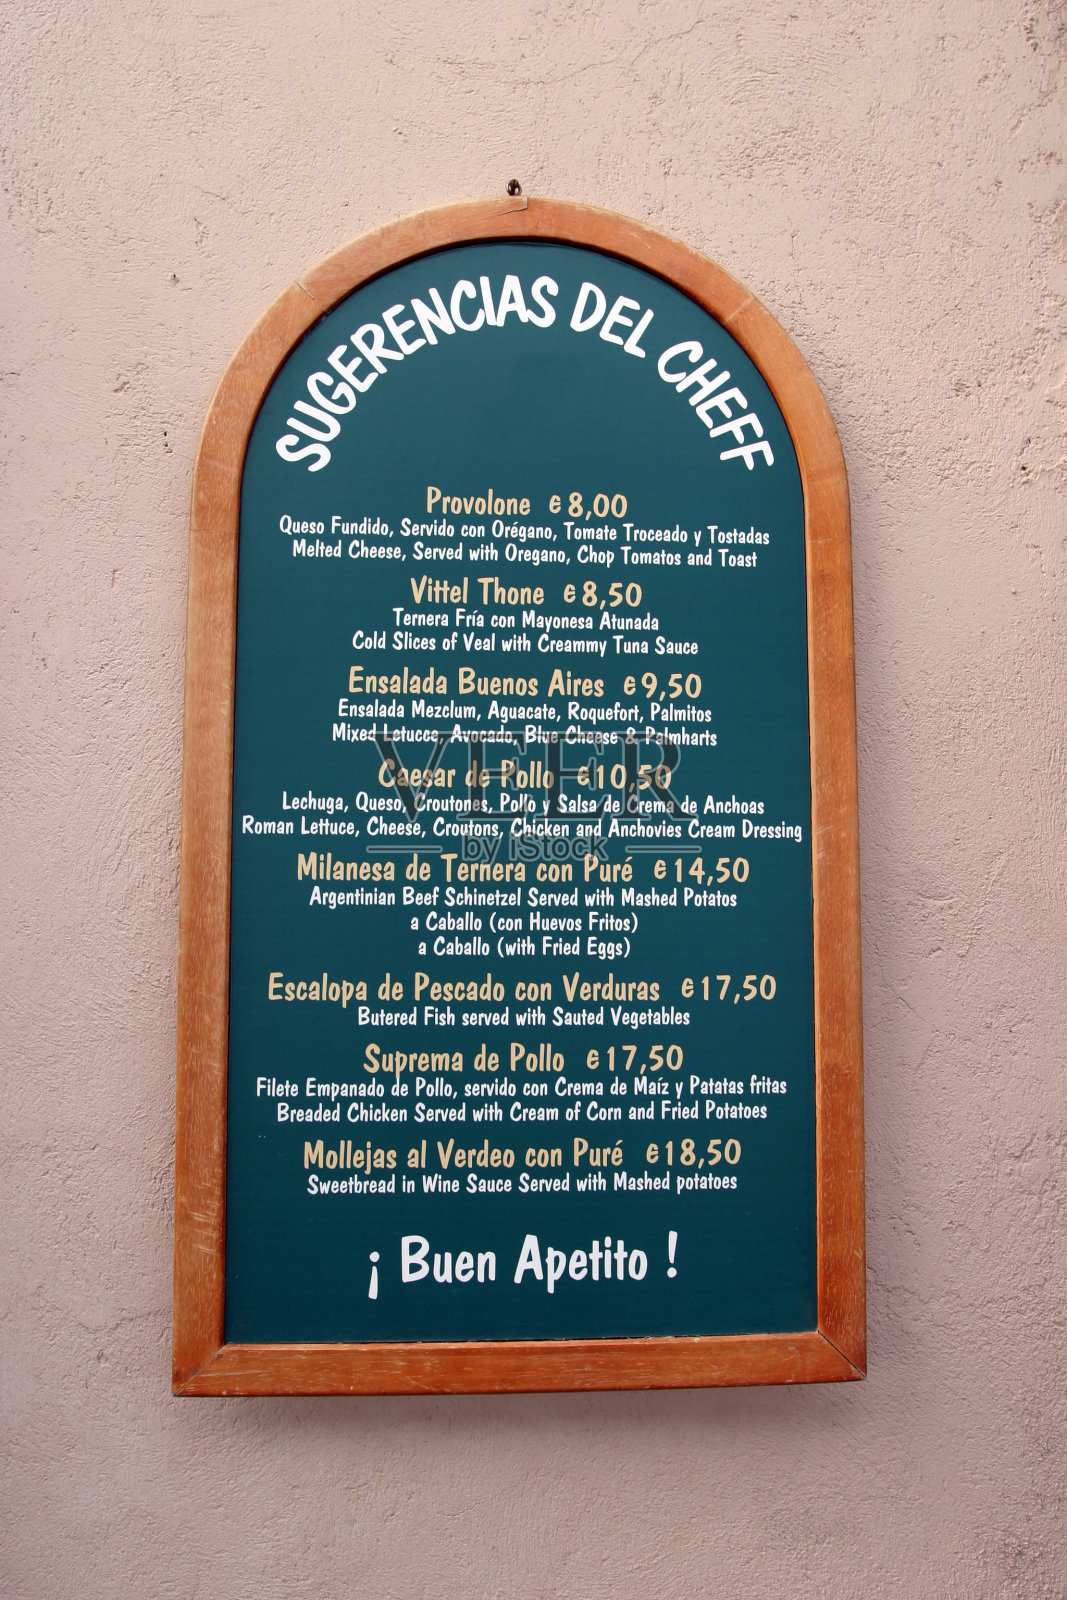 SUGERENCIAS DEL CHEFF
Provolone €8,00
Queso Fundido, Servido con Orégano, Tomate Troceado y Tostadas
Melted Cheese, Served with Oregano, Chop Tomatos and Toast
Vittel Thone €8,50
Ternera Fría con Mayonesa Atunada
Cold Slices of Veal with Creammy Tuna Sauce
Ensalada Buenos Aires €9,50
Ensalada Mezclum, Aguacate, Roquefort, Palmitos
Mixed Letucce, Avocado, Blue Cheese & Palmharts
VEER
Caesar de Pollo €10,50
Lechuga, Queso, Croutones, Pollo y Salsa de Crema de Anchoas
Roman Lettuce, Cheese, Croutons, Chicken and Anchovies Cream Dressing
by iStock
Milanesa de Ternera con Puré €14,50
Argentinian Beef Schinetzel Served with Mashed Potatos
a Caballo (con Huevos Fritos)
a Caballo (with Fried Eggs)
Escalopa de Pescado con Verduras €17,50
Butered Fish served with Sauted Vegetables
Suprema de Pollo €17,50
Filete Empanado de Pollo, servido con Crema de Maíz y Patatas fritas
Breaded Chicken Served with Cream of Corn and Fried Potatoes
Mollejas al Verdeo con Puré €18,50
Sweetbread in Wine Sauce Served with Mashed potatoes
¡ Buen Apetito !